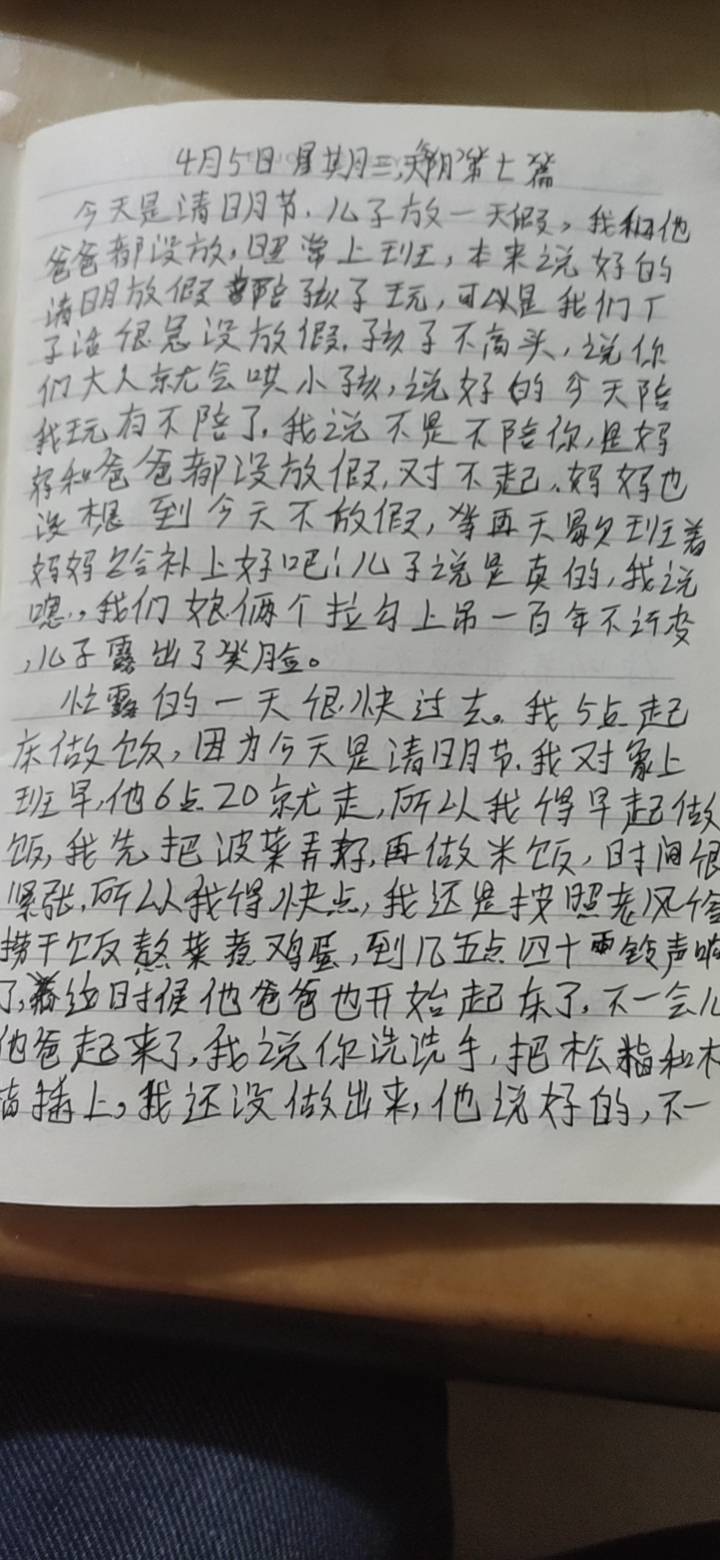 4月5日 星期三,第七篇
今天是清明节.儿子放一天假,我和他
爸爸都没放,照常上班,本来说好的
清明放假陪孩子玩,可以是我们厂
子活很急没放假.孩子不高头,说你
们大人就会哄小孩,说好的今天陪
我玩有不陪了.我说不是不陪你,是妈
妈和爸爸都没放假,对不起.妈妈也
没想到今天不放假,等再天歇班着
妈妈给补上好吧!儿子说是真的,我说
嗯.,我们娘俩个拉勾上吊一百年不许变
,儿子露出了笑脸。
忙露的一天很快过去。我5点起
床做饭,因为今天是清明节.我对象上
班早,他6点20就走,所以我得早起做
饭,我先把波菜弄好,再做米饭,时间很
紧张.所以我得快点,我还是按照老风俗
捞干饭熬菜煮鸡蛋,到了五点四十铃声响
了,这时候他爸爸也开始起床了,不一会儿
他爸起来了,我说你洗洗手,把松枝和木
插上,我还没做出来,他说好的,不一